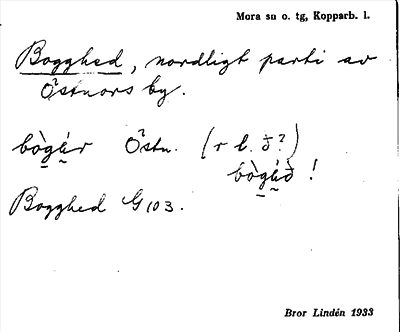 Mora sn o. tg, Kopparb. l.
Bogghed, nordligt parti av
Östnors by.
bò̱gé̱r Östn. (r l. ð?)
bò̱gé̱ð !
Bogghed G 103.
Bror Lindén 1933